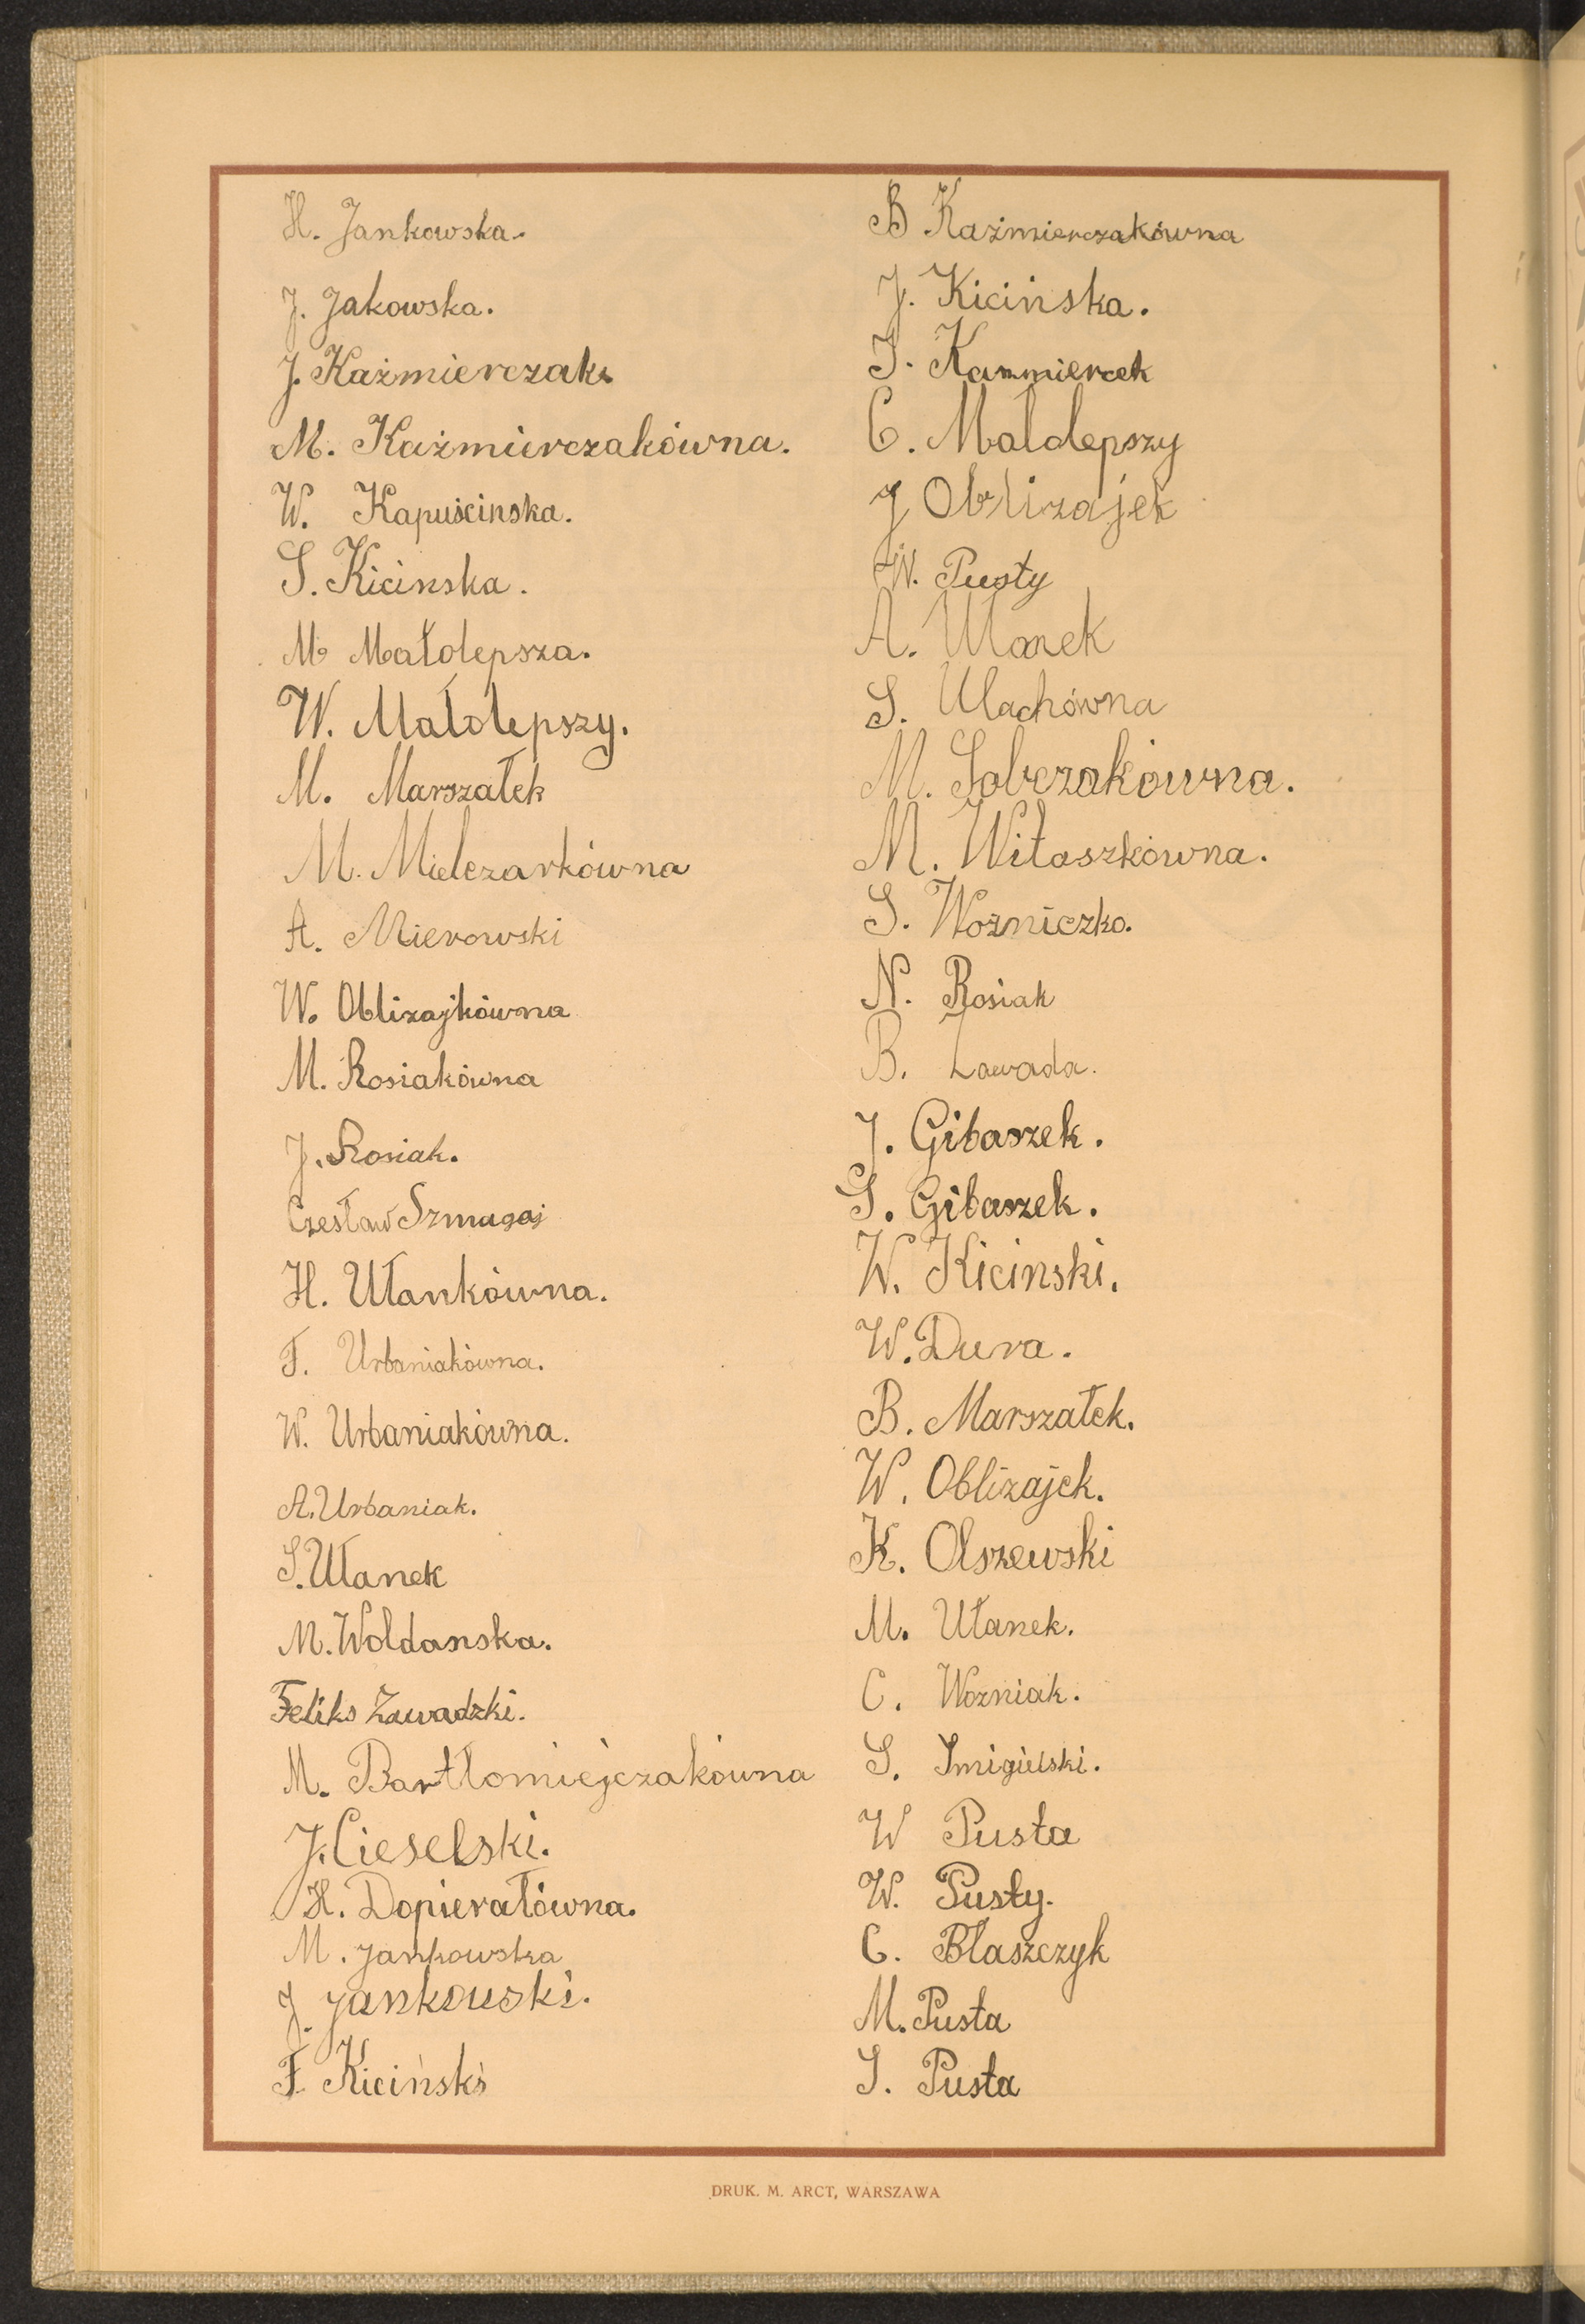 H. Jankowska.
J. Jakowska.
J. Kaźmierczak.
M. Kaźmierczakówna.
W. Kapuścinska.
S. Kicinska.
M. Małolepsza.
W. Małolepszy.
M. Marszałek
M. Mielczarkówna
A. Mierowski
W. Oblizajkówna
M. Rosiakówna
J. Rosiak.
Czesław Szmagaj
H. Ułankówna.
F. Urbaniakówna.
W. Urbaniakówna.
A. Urbaniak.
S. Ułanek
M. Woldanska.
Feliks Zawadzki.
M. Bartłomiejczakówna
J. Cieselski.
H. Dopierałówna.
M. Jankowska
J. Jankowski.
F. Kiciński
B Kaźmierczakówna
J. Kicińska.
J. Kazmiercek
C. Malolepszy
J Oblizajek
W. Pusty
A. Ułanek
S. Ulachówna
M. Sobczakówna.
M. Witaszkówna.
S. Woźniczko.
N. Rosiak
B. Zawada.
J. Gibaszek.
S. Gibaszek.
W. Kicinski.
W. Dura.
B. Marszałek.
W. Oblizajek.
K. Olszewski
M. Ułanek.
C. Wozniak.
S. Smigielski.
W Pusta
W. Pusty.
C. Błaszczyk
M. Pusta
S. Pusta
DRUK. M. ARCT, WARSZAWA